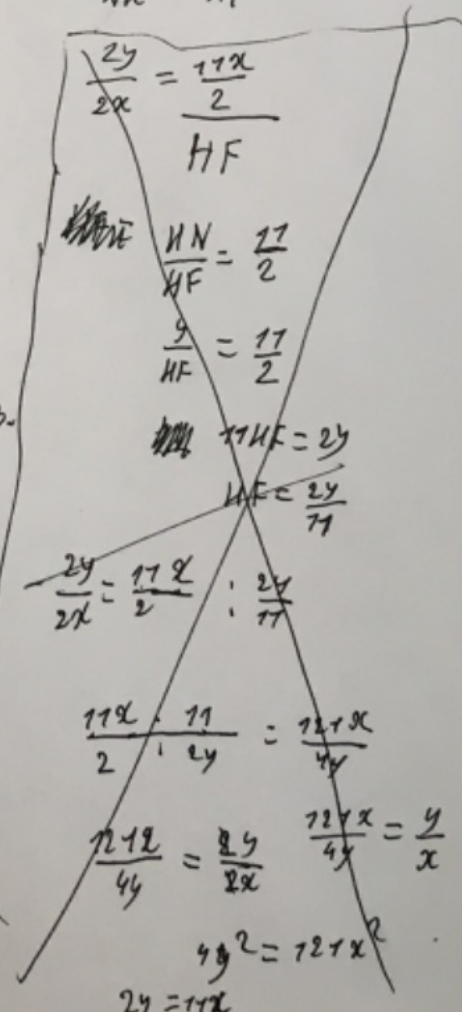 2y/2x = 11x/2 / HF
HN/HF = 11/2
y/HF = 11/2
11HF = 2y
HF = 2y/11
2y/2x = 11x/2 : 2y/11
11x/2 · 11/2y = 121x/4y
121x/4y = 2y/2x
121x/4y = y/x
4y² = 121x²
2y = 11x